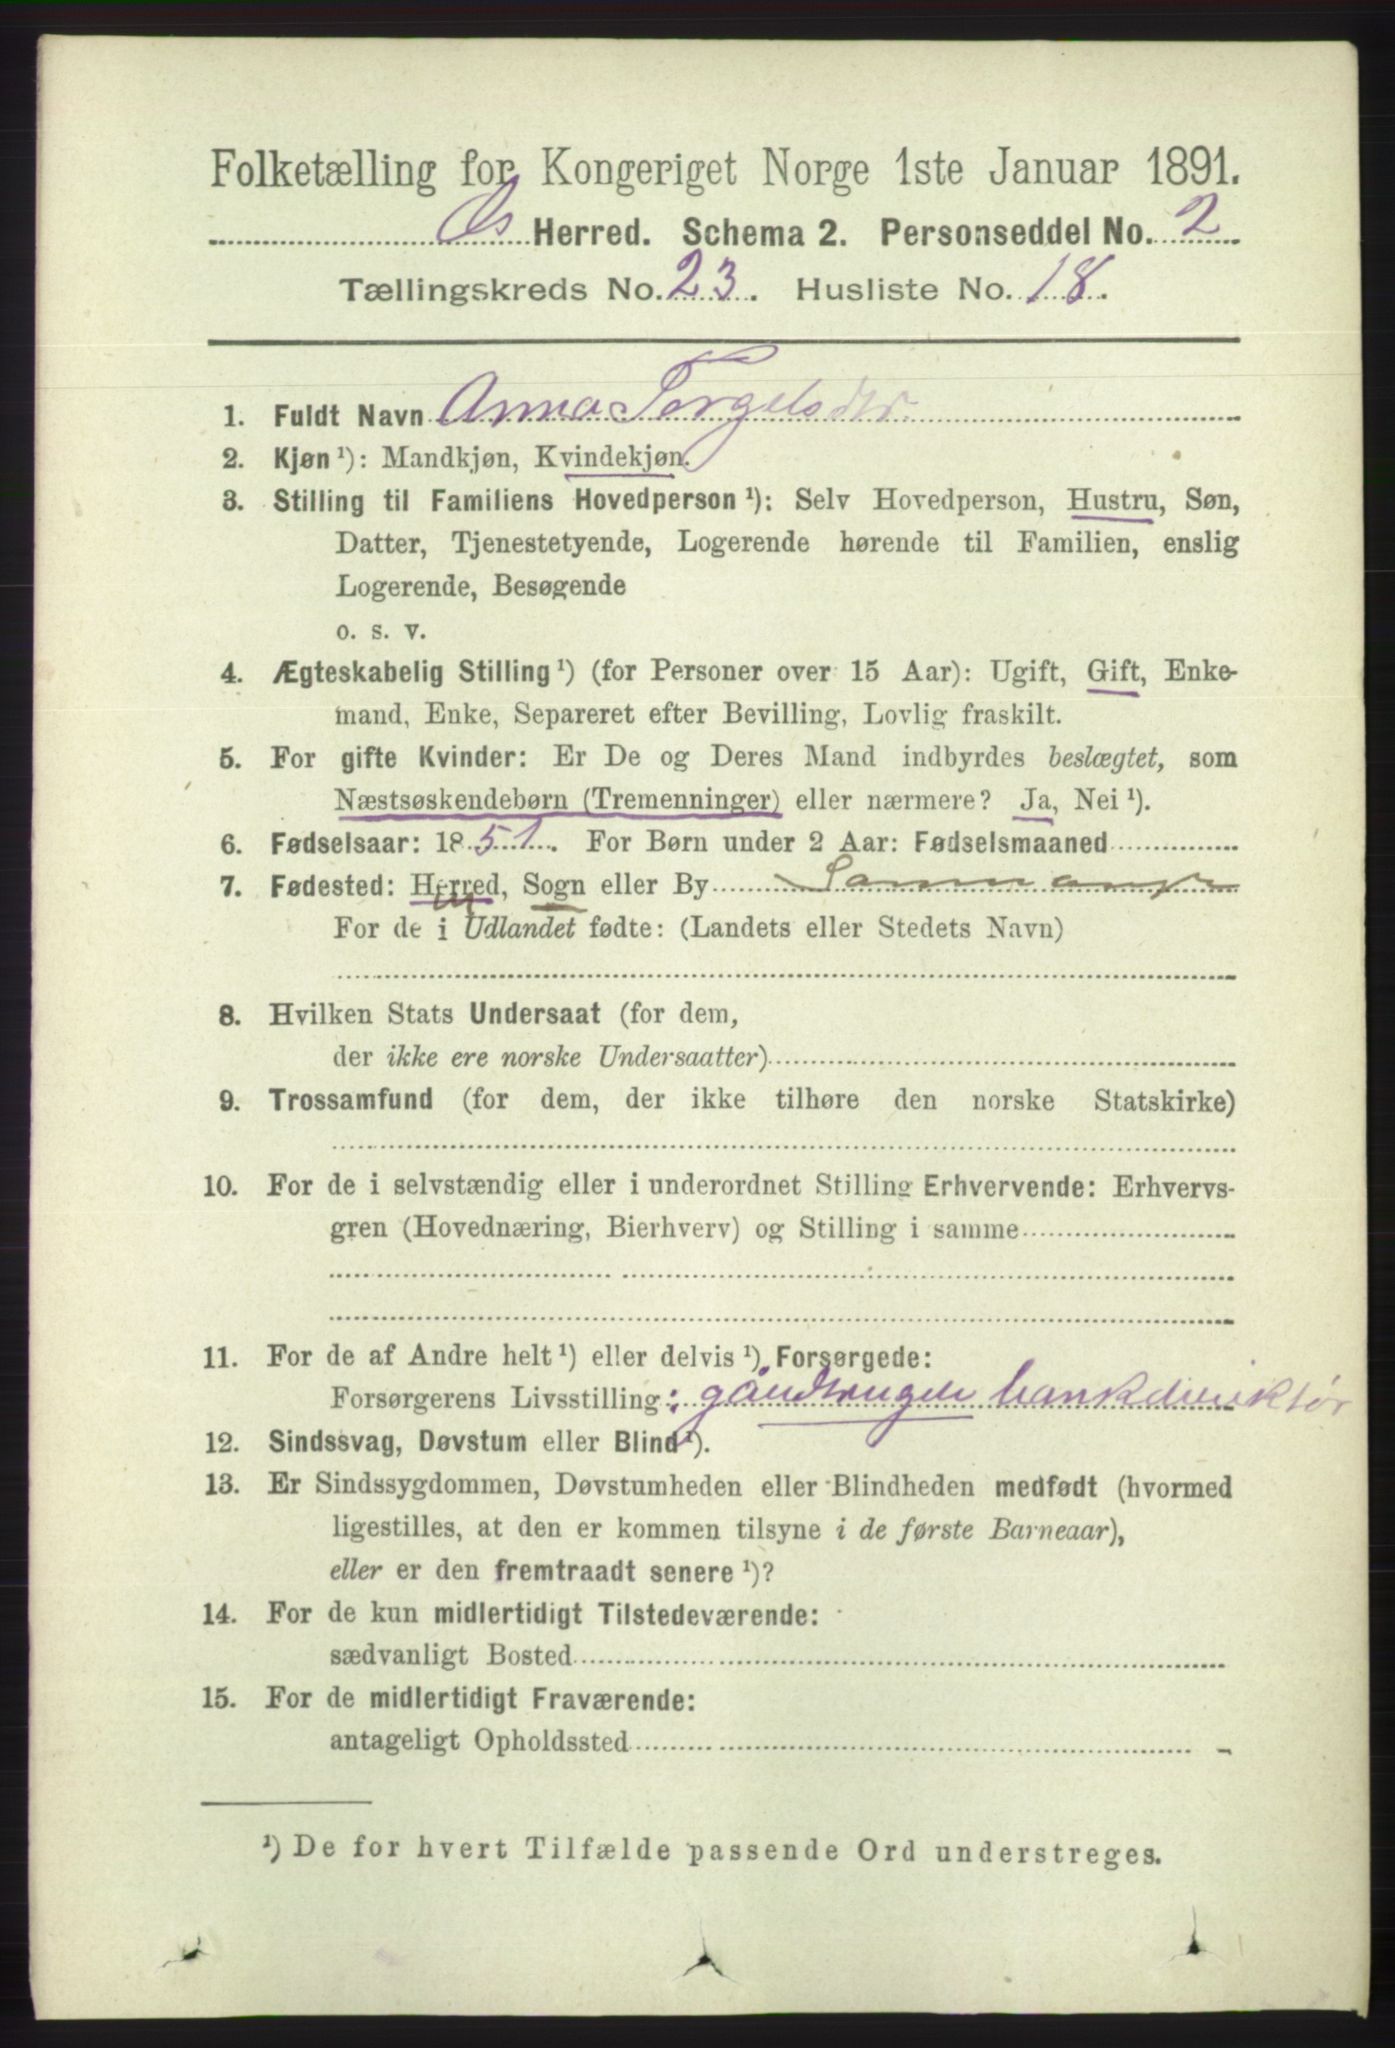 Folketælling for Kongeriget Norge 1ste Januar 1891.
Os Herred. Schema 2. Personseddel No. 2
Tællingskreds No. 23. Husliste No. 18.
1. Fuldt Navn Anna Torgelsdtr.
2. Kjøn ¹): Mandkjøn, Kvindekjøn.
3. Stilling til Familiens Hovedperson ¹): Selv Hovedperson, Hustru, Søn,
Datter, Tjenestetyende, Logerende hørende til Familien, enslig
Logerende, Besøgende
o. s. v.
4. Ægteskabelig Stilling ¹) (for Personer over 15 Aar): Ugift, Gift, Enke-
mand, Enke, Separeret efter Bevilling, Lovlig fraskilt.
5. For gifte Kvinder: Er De og Deres Mand indbyrdes beslægtet, som
Næstsøskendebørn (Tremenninger) eller nærmere? Ja, Nei ¹).
6. Fødselsaar: 1851. For Børn under 2 Aar: Fødselsmaaned
7. Fødested: Herred, Sogn eller By
For de i Udlandet fødte: (Landets eller Stedets Navn)
8. Hvilken Stats Undersaat (for dem,
der ikke ere norske Undersaatter)
9. Trossamfund (for dem, der ikke tilhøre den norske Statskirke)
10. For de i selvstændig eller i underordnet Stilling Erhvervende: Erhvervs-
gren (Hovednæring, Bierhverv) og Stilling i samme
11. For de af Andre helt ¹) eller delvis ¹) Forsørgede:
Forsørgerens Livsstilling: bankdirektør
12. Sindssvag, Døvstum eller Blind ¹).
13. Er Sindssygdommen, Døvstumheden eller Blindheden medfødt (hvormed
ligestilles, at den er kommen tilsyne i de første Barneaar),
eller er den fremtraadt senere ¹)?
14. For de kun midlertidigt Tilstedeværende:
sædvanligt Bosted
15. For de midlertidigt Fraværende:
antageligt Opholdssted
¹) De for hvert Tilfælde passende Ord understreges.